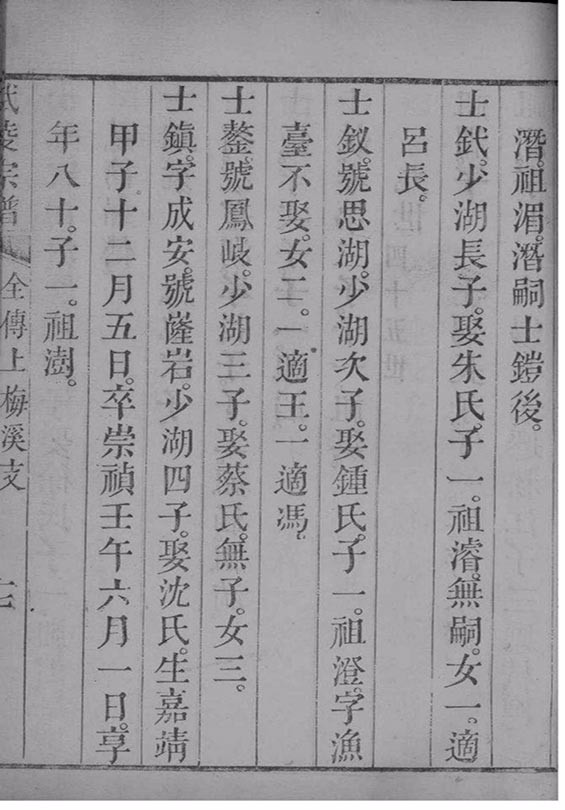 潛。祖湄。潛嗣士鎧後。
士釴。少湖長子。娶朱氏。子一。祖濬。無嗣。女一。適
呂長。
士釵。號思湖。少湖次子。娶鍾氏。子一。祖澄。字漁
臺。不娶。女二。一適王。一適馮。
士鏊。號鳳岐。少湖三子。娶蔡氏。無子。女三。
士鎮。字成安。號蓙岩。少湖四子。娶沈氏。生嘉靖
甲子十二月五日。卒崇禎壬午六月一日。享
年八十。子一。祖澍。
宗譜 全傳上梅溪支